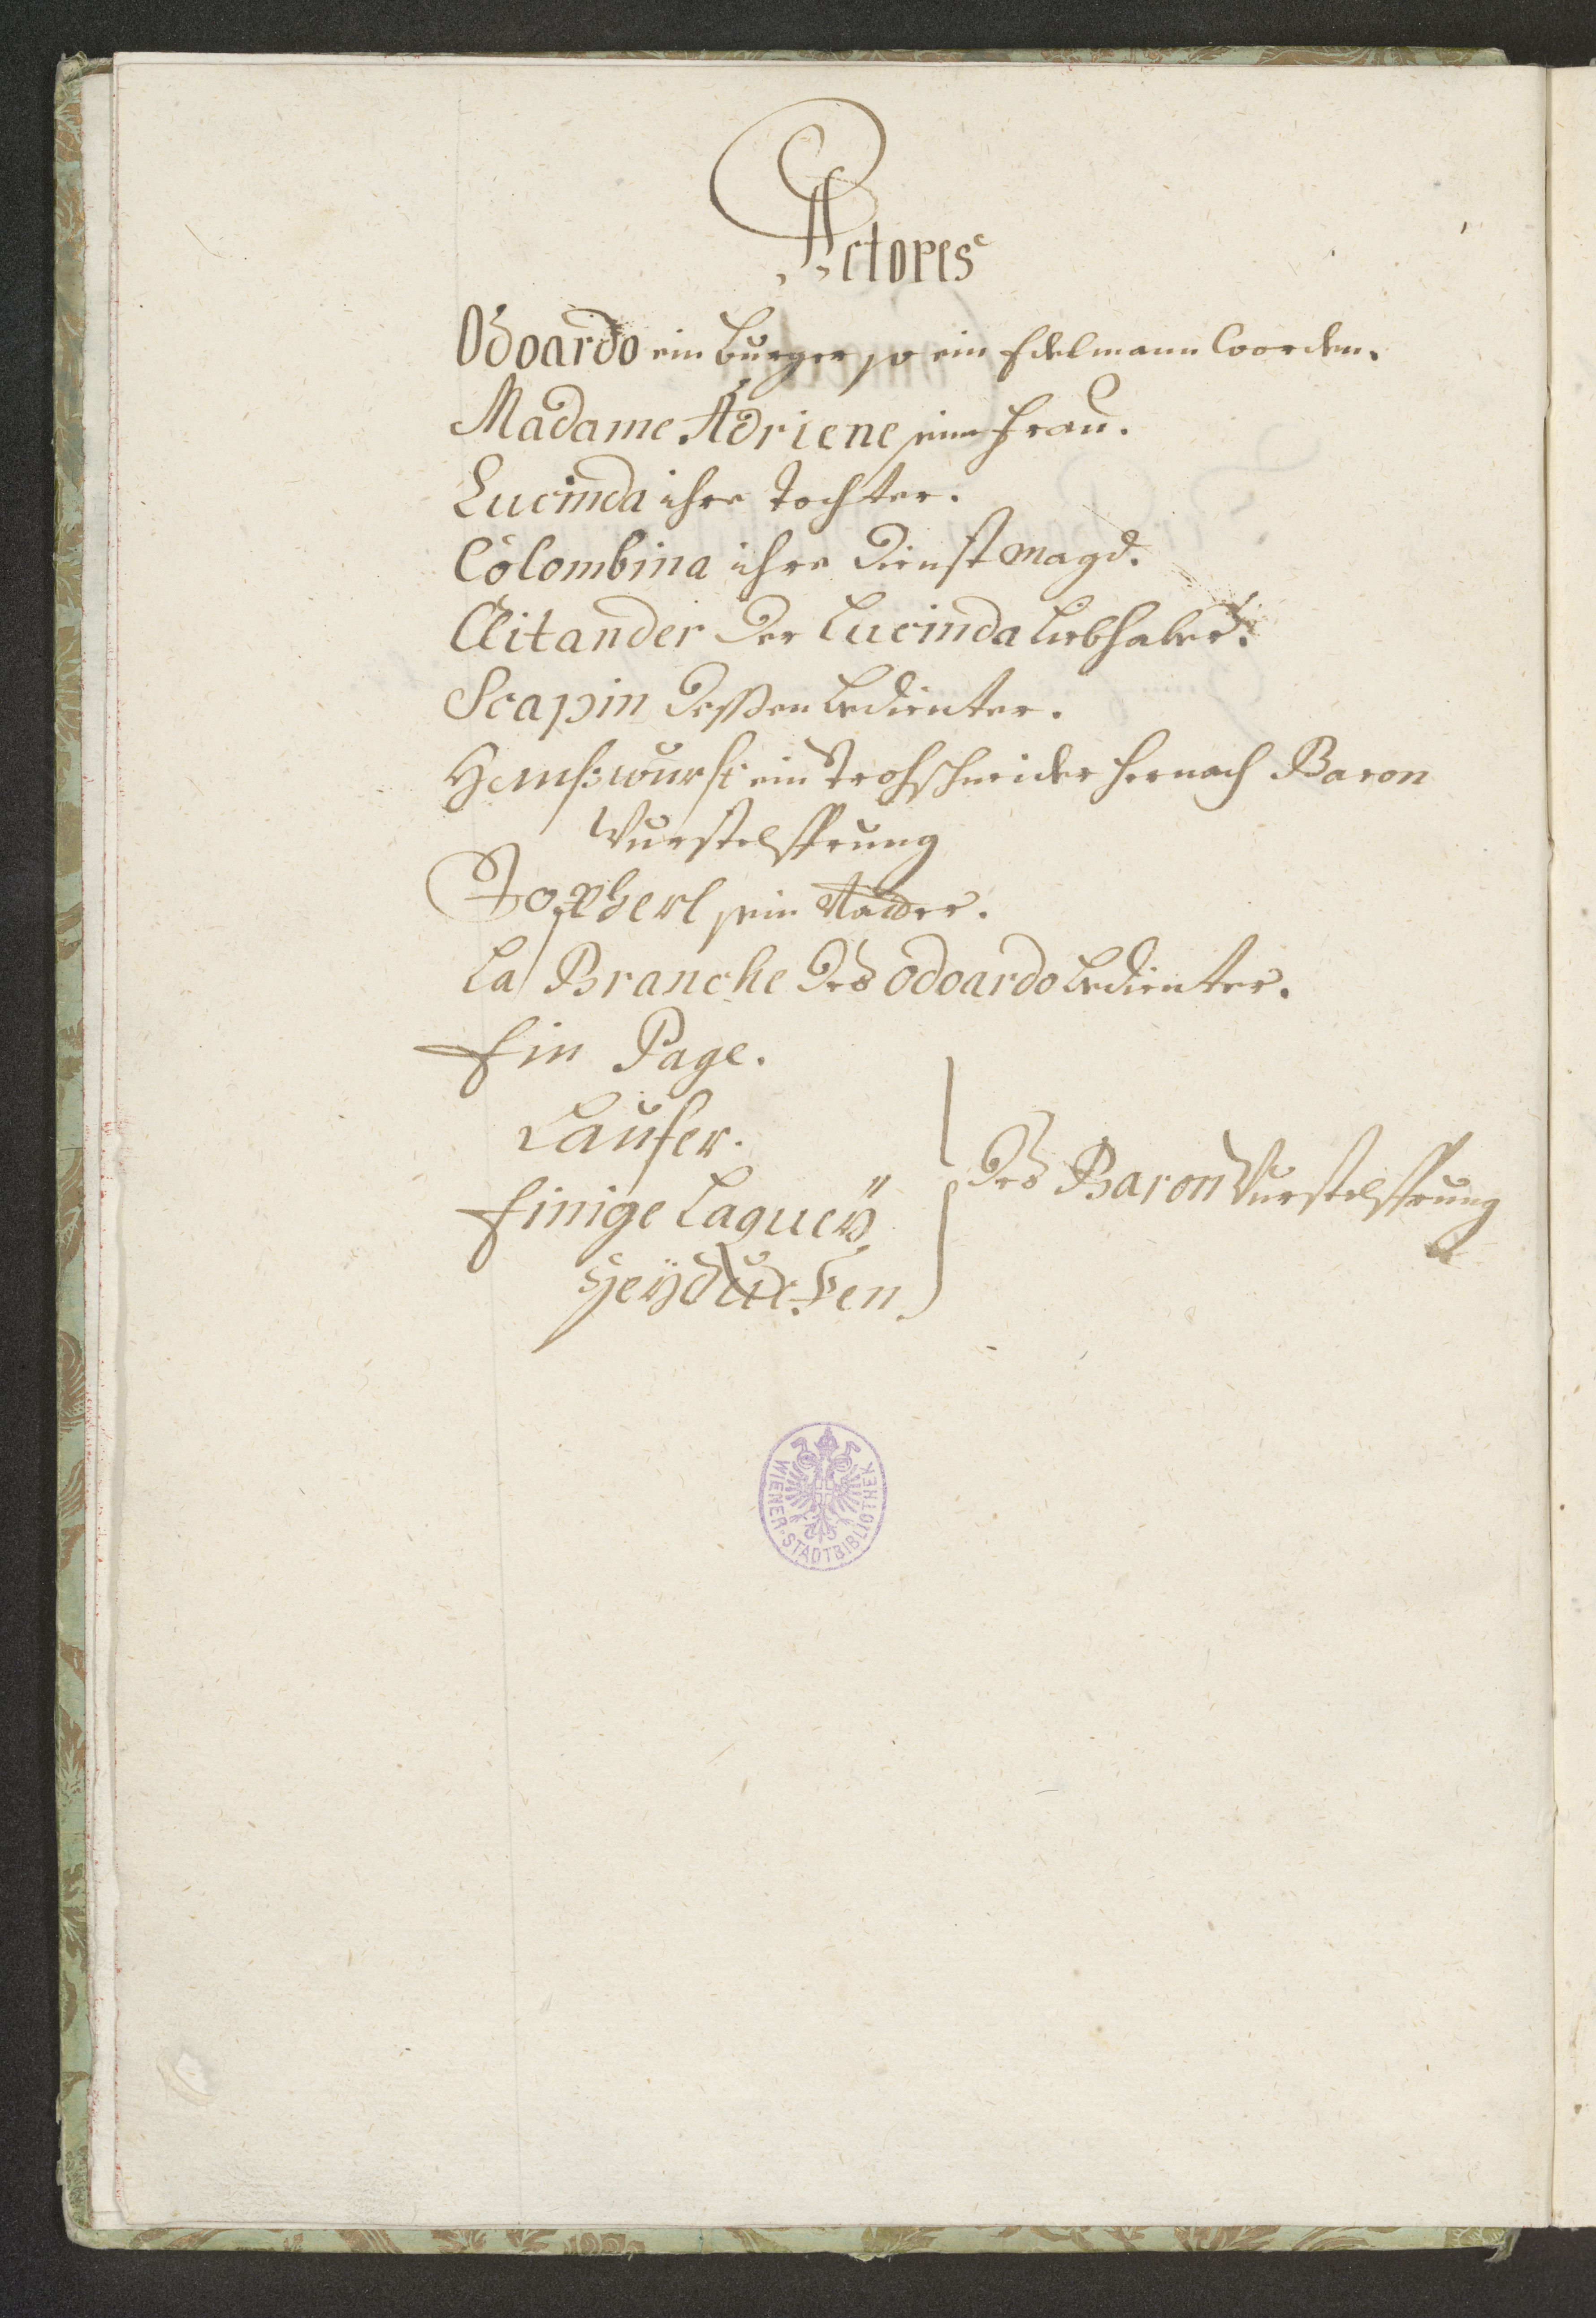 Actores
Odoardo ein burger so ein Edelmann worden.
Madame Adriene seine frau.
Lucinda ihre tochter.
Colombina ihre dienst magd.
Leitander der Lucinda liebhaber.
Scapin deßen bedienter.
Hanß: wurst ein strohschneider hernach Baron
Wurstelsprung
sein Vatter.
La Branche des Odoardo bedienter.
Ein Page.
Laufer.
Einige Laqueÿ
Heÿducken
des Baron Wurstelsprung
WIENER-STADTBIBLIOTHEK